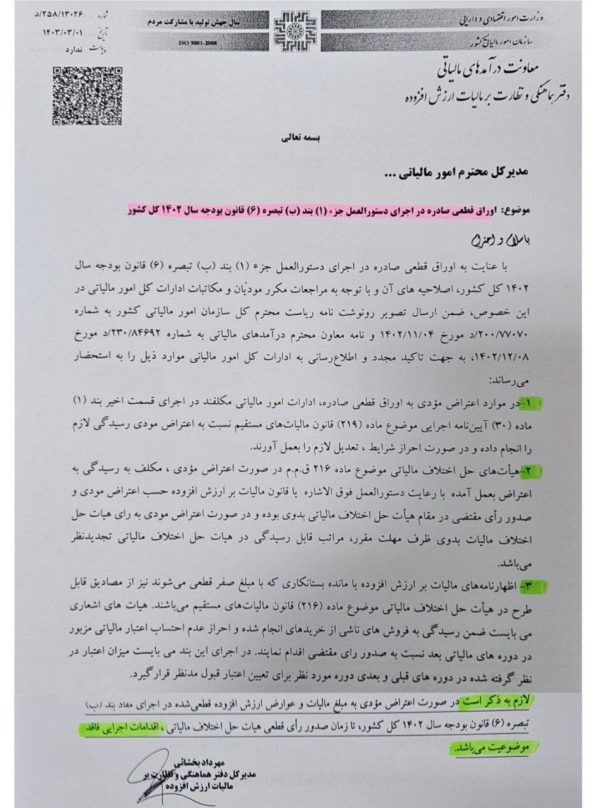 وزارت امور اقتصادی و دارایی
سازمان امور مالیاتی کشور
سال جهش تولید با مشارکت مردم
ISO 9001-2008
شماره ۲۵۸/۱۳۰۲۶/د
تاریخ ۱۴۰۳/۰۳/۰۱
پیوست ندارد
معاونت درآمدهای مالیاتی
دفتر هماهنگی و نظارت بر مالیات ارزش افزوده
بسمه تعالی
مدیر کل محترم امور مالیاتی ...
موضوع: اوراق قطعی صادره در اجرای دستورالعمل جزء (۱) بند (ب) تبصره (۶) قانون بودجه سال ۱۴۰۲ کل کشور
باسلام و احترام
با عنایت به اوراق قطعی صادره در اجرای دستورالعمل جزء (۱) بند (ب) تبصره (۶) قانون بودجه سال
۱۴۰۲ کل کشور، اصلاحیه های آن و با توجه به مراجعات مکرر مودیان و مکاتبات ادارات کل امور مالیاتی در
این خصوص، ضمن ارسال تصویر رونوشت نامه ریاست محترم کل سازمان امور مالیاتی کشور به شماره
۲۰۰/۷۷۰۷۰/د مورخ ۱۴۰۲/۱۱/۰۴ و نامه معاون محترم درآمدهای مالیاتی به شماره ۲۳۰/۸۴۶۹۲/د مورخ
۱۴۰۲/۱۲/۰۸، به جهت تاکید مجدد و اطلاع‌رسانی به ادارات کل امور مالیاتی موارد ذیل را به استحضار
می‌رساند:
۱-در موارد اعتراض مؤدی به اوراق قطعی صادره، ادارات امور مالیاتی مکلفند در اجرای قسمت اخیر بند (۱)
ماده (۳۰) آیین‌نامه اجرایی موضوع ماده (۲۱۹) قانون مالیات‌های مستقیم نسبت به اعتراض مودی رسیدگی لازم
را انجام داده و در صورت احراز شرایط ، تعدیل لازم را بعمل آورند.
۲-هیأت‌های حل اختلاف مالیاتی موضوع ماده ۲۱۶ ق.م.م در صورت اعتراض مؤدی ، مکلف به رسیدگی به
اعتراض بعمل آمده با رعایت دستورالعمل فوق الاشاره یا قانون مالیات بر ارزش افزوده حسب اعتراض مودی و
صدور رأی مقتضی در مقام هیأت حل اختلاف مالیاتی بدوی بوده و در صورت اعتراض مودی به رای هیات حل
اختلاف مالیات بدوی ظرف مهلت مقرر، مراتب قابل رسیدگی در هیات حل اختلاف مالیاتی تجدیدنظر
می‌باشد.
۳- اظهارنامه‌های مالیات بر ارزش افزوده با مانده بستانکاری که با مبلغ صفر قطعی می‌شوند نیز از مصادیق قابل
طرح در هیأت حل اختلاف مالیاتی موضوع ماده (۲۱۶) قانون مالیات‌های مستقیم می‌باشند. هیات های اشعاری
می بایست ضمن رسیدگی به فروش های ناشی از خریدهای انجام شده و احراز عدم احتساب اعتبار مالیاتی مزبور
در دوره های مالیاتی بعد نسبت به صدور رای مقتضی اقدام نمایند. در اجرای این بند می بایست میزان اعتبار در
نظر گرفته شده در دوره های قبلی و بعدی دوره مورد نظر برای تعیین اعتبار قبول مدنظر قرارگیرد.
لازم به ذکر است در صورت اعتراض مؤدی به مبلغ مالیات و عوارض ارزش افزوده قطعی‌شده در اجرای مفاد بند (ب)
تبصره (۶) قانون بودجه سال ۱۴۰۲ کل کشور، تا زمان صدور رأی قطعی هیات حل اختلاف مالیاتی ، اقدامات اجرایی فاقد
موضوعیت می‌باشد.
مهرداد بخشانی
مدیر کل دفتر هماهنگی و نظارت بر
مالیات ارزش افزوده